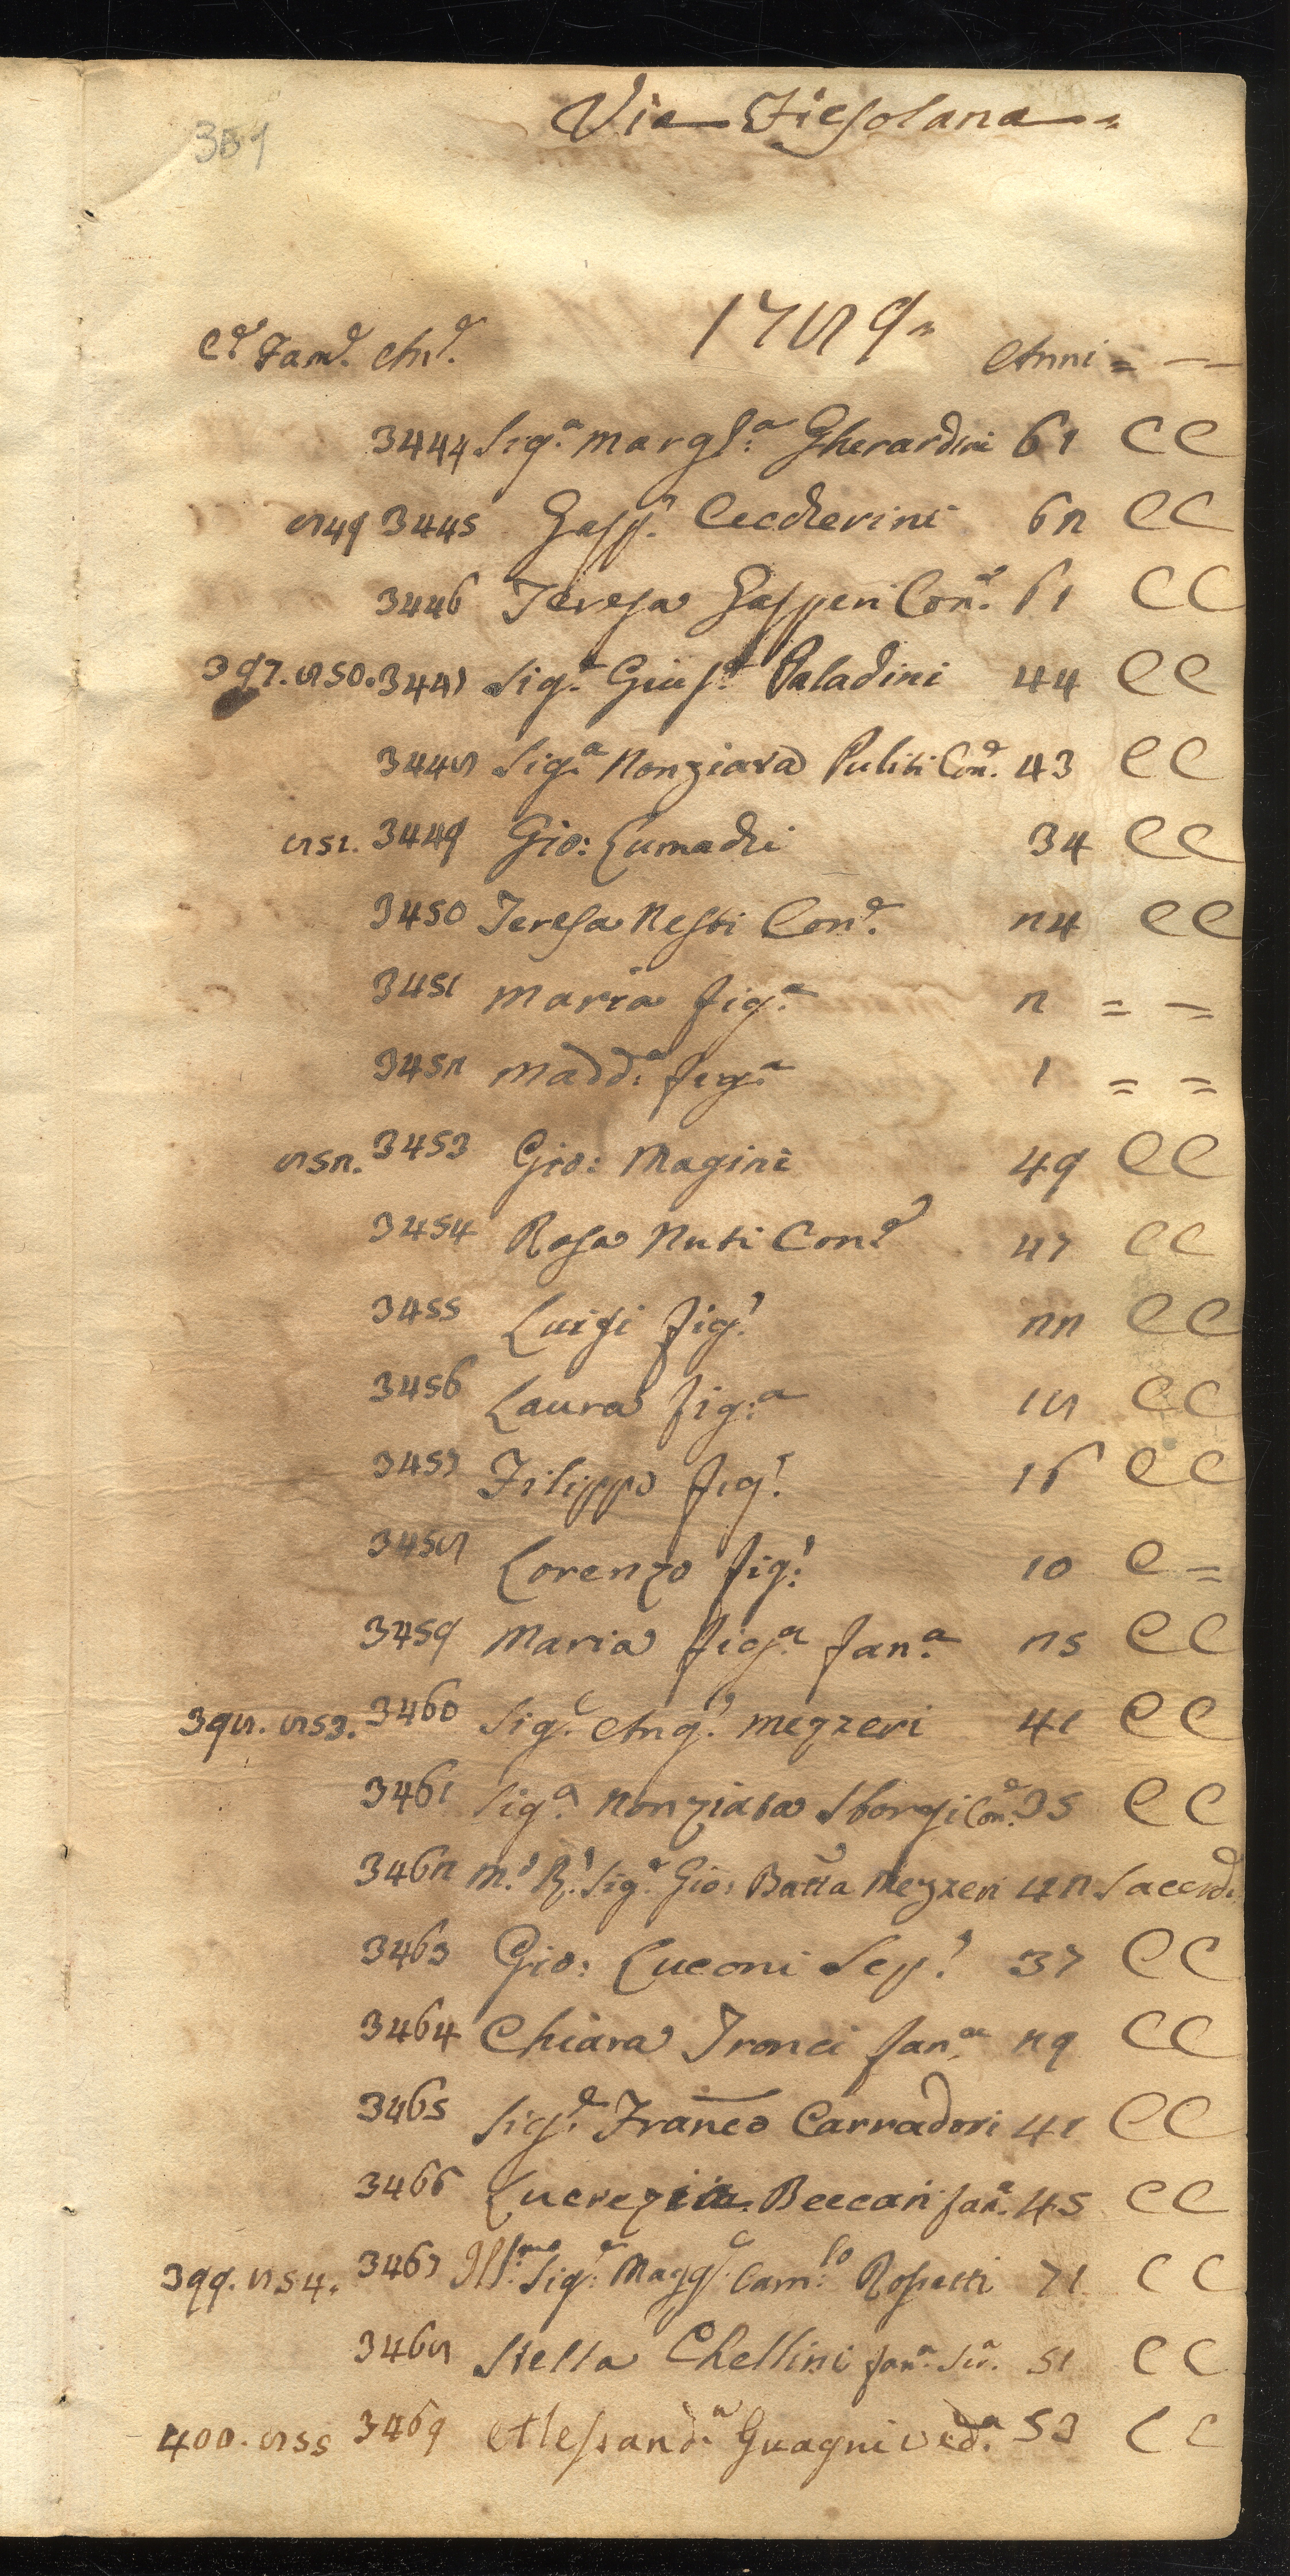 Via Fiesolana
389
1789
Ce. Fam.e An.e Anni = —
3444 Sig.a Marg.ta Gherardini 61 C C
849 3445 Gasp.o Ceccherini 62 C C
3446 Teresa Gasperi Con.e 61 C C
397. 850. 3447 Sig.r Gius.e Paladini 44 C C
3448 Sig.a Nonziata Puliti Con.e 43 C C
851. 3449 Gio: Lumachi 34 C C
3450 Teresa Nesti Con.e 24 C C
3451 Maria fig.a 2 = =
3452 Madd.a fig.a 1 = =
852. 3453 Gio: Magini 49 C C
3454 Rosa Nuti Con.e 47 C C
3455 Luigi fig.o 22 C C
3456 Laura fig.a 18 C C
3457 Filippo fig.o 16 C C
3458 Lorenzo fig.o 10 C =
3459 Maria fig.a fan.a 25 C C
398. 853. 3460 Sig.r Ang.o Mezzeri 41 C C
3461 Sig.a Nonziata Sborgi Con.e 35 C C
3462 M.o R.o Sig.r Gio: Batta Mezzeri 42 Sacerd.
3463 Gio: Luconi Ser.o 37 C C
3464 Chiara Tronci fan.a 29 C C
3465 Sig.r Franco Carradori 41 C C
3466 Lucrezia Beccari fan.a 45 C C
399. 854. 3467 Ill.mo Sig.r Magg.r Cam.lo Rospetti 71 C C
3468 Stella Chellini fan.a 51 C C
400. 855 3469 Alessand.a Guagni ved.a 53 C C